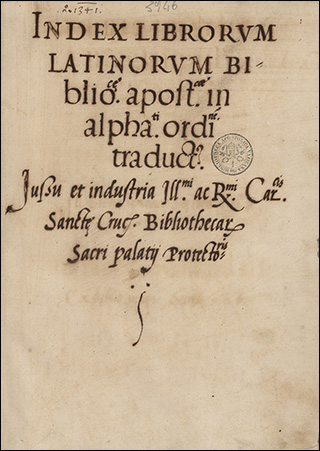 2.1341. 3946
INDEX LIBRORVM
LATINORVM BI-
blioᶜᵉ. apostᶜᵉ. in
alphaᵗⁱ. ordiⁿᵉ.
traductꝰ.
Jussu et industria Ill.ᵐⁱ ac Rᵐⁱ. Carˡⁱˢ.
Sanctę Cruc. Bibliothecar
Sacri palatij Protectoʳⁱˢ